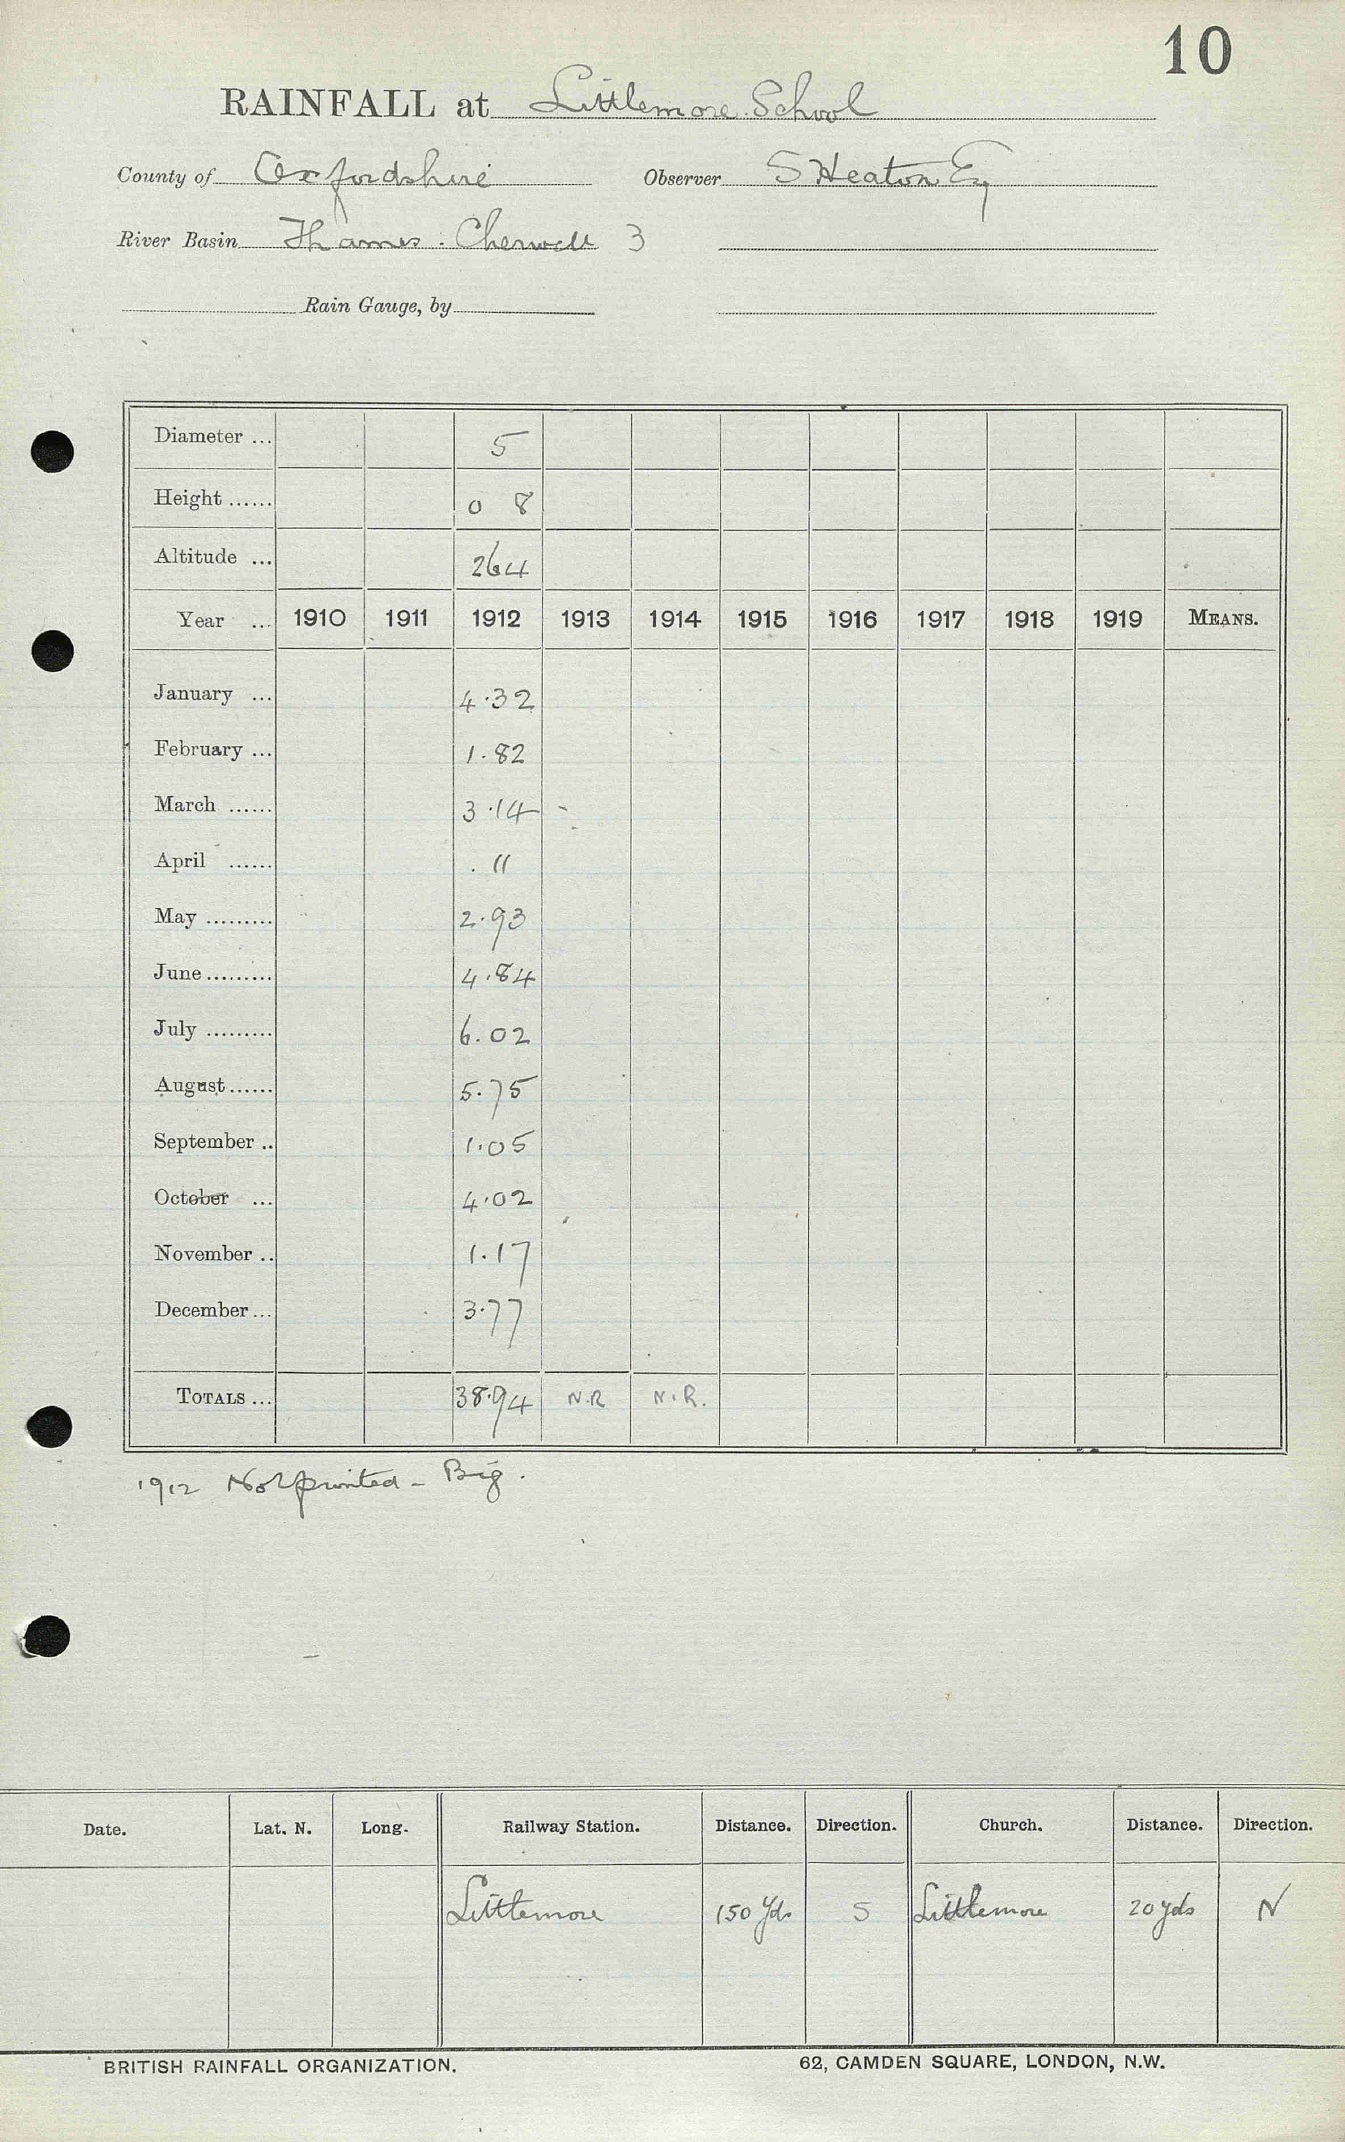 10
RAINFALL at Littlemore School
County of Oxfordshire Observer S Heaton Esq
River Basin Thames. Cherwell 3
Rain Gauge, by
Diameter ... 5
Height ...... 0 8
Altitude ... 264
Year ... 1910 1911 1912 1913 1914 1915 1916 1917 1918 1919 MEANS.
January ... 4.32
February ... 1.82
March ...... 3.14
April ...... .11
May ......... 2.93
June ......... 4.84
July ......... 6.02
August ...... 5.75
September .. 1.05
October ... 4.02
November .. 1.17
December ... 3.77
TOTALS ... 38.94 N.R N.R.
1912 Not printed - Big.
Date. Lat. N. Long. Railway Station. Distance. Direction. Church. Distance. Direction.
Littlemore 150 Yds S Littlemore 20 yds N
BRITISH RAINFALL ORGANIZATION. 62, CAMDEN SQUARE, LONDON, N.W.